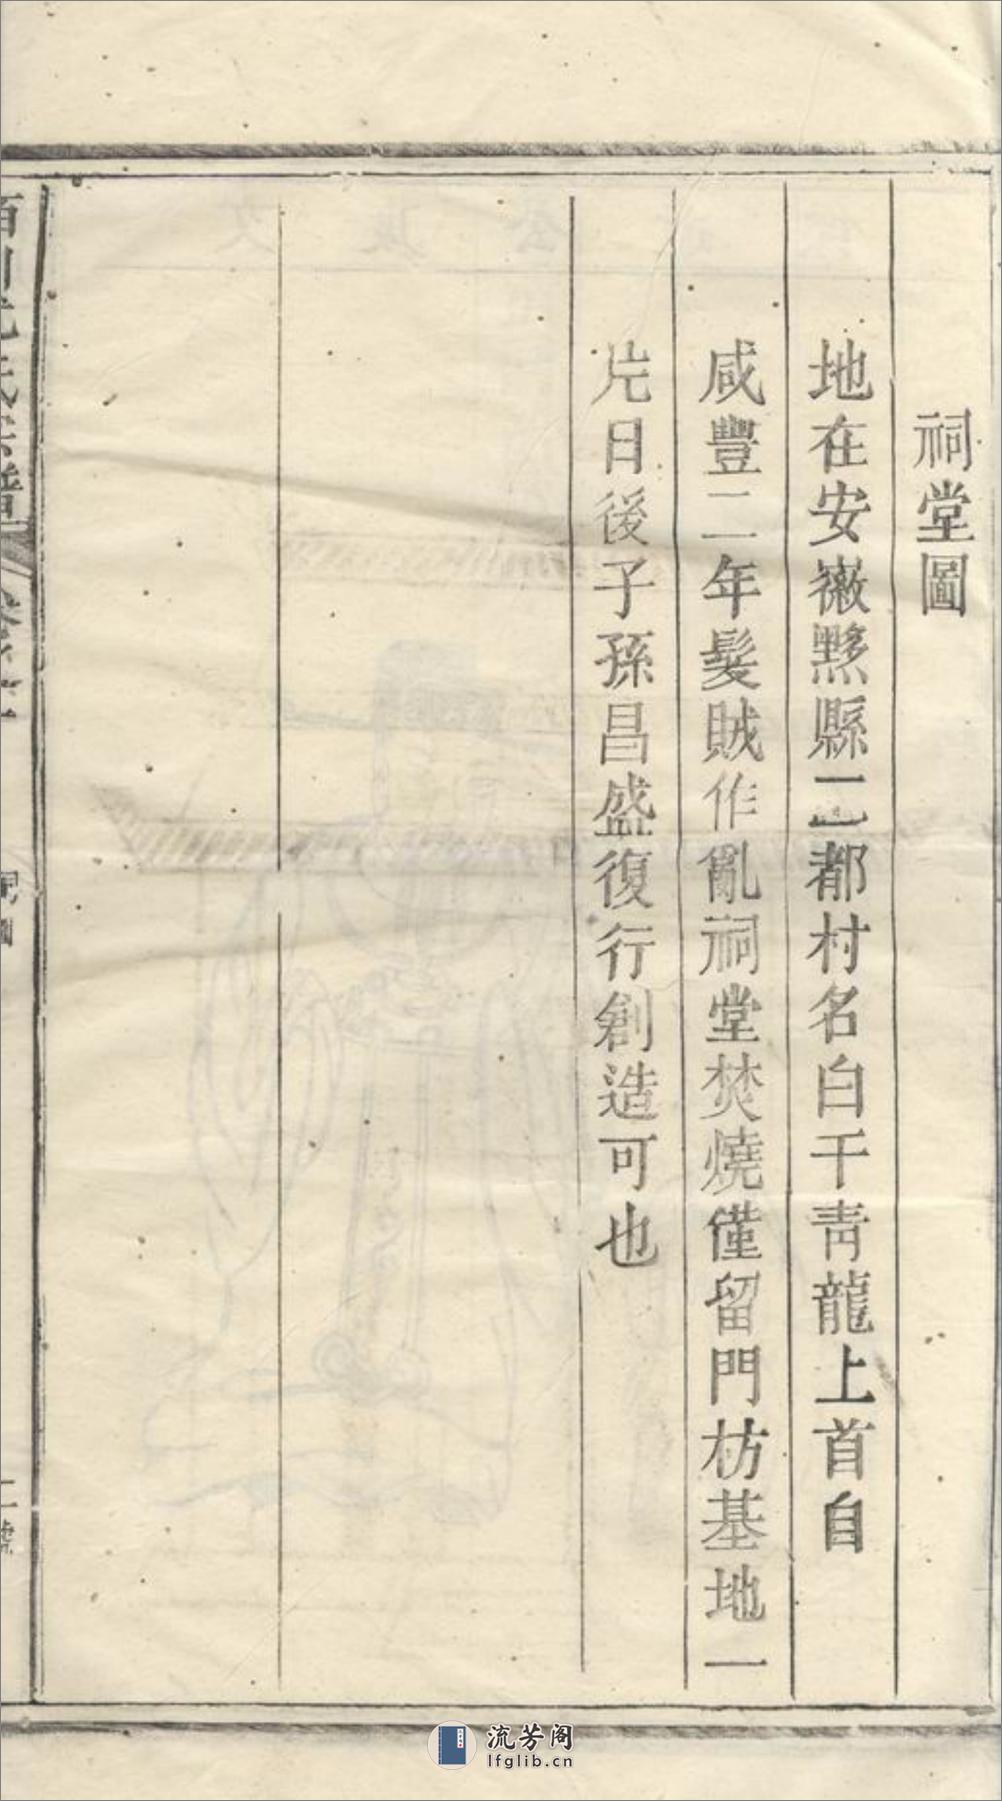 祠堂圖
地在安徽黟縣二都村名白干靑龍上首自
咸豐二年髮賊作亂祠堂焚燒僅留門枋基地一
片日後子孫昌盛復行創造可也
流芳阁
lfglib.cn